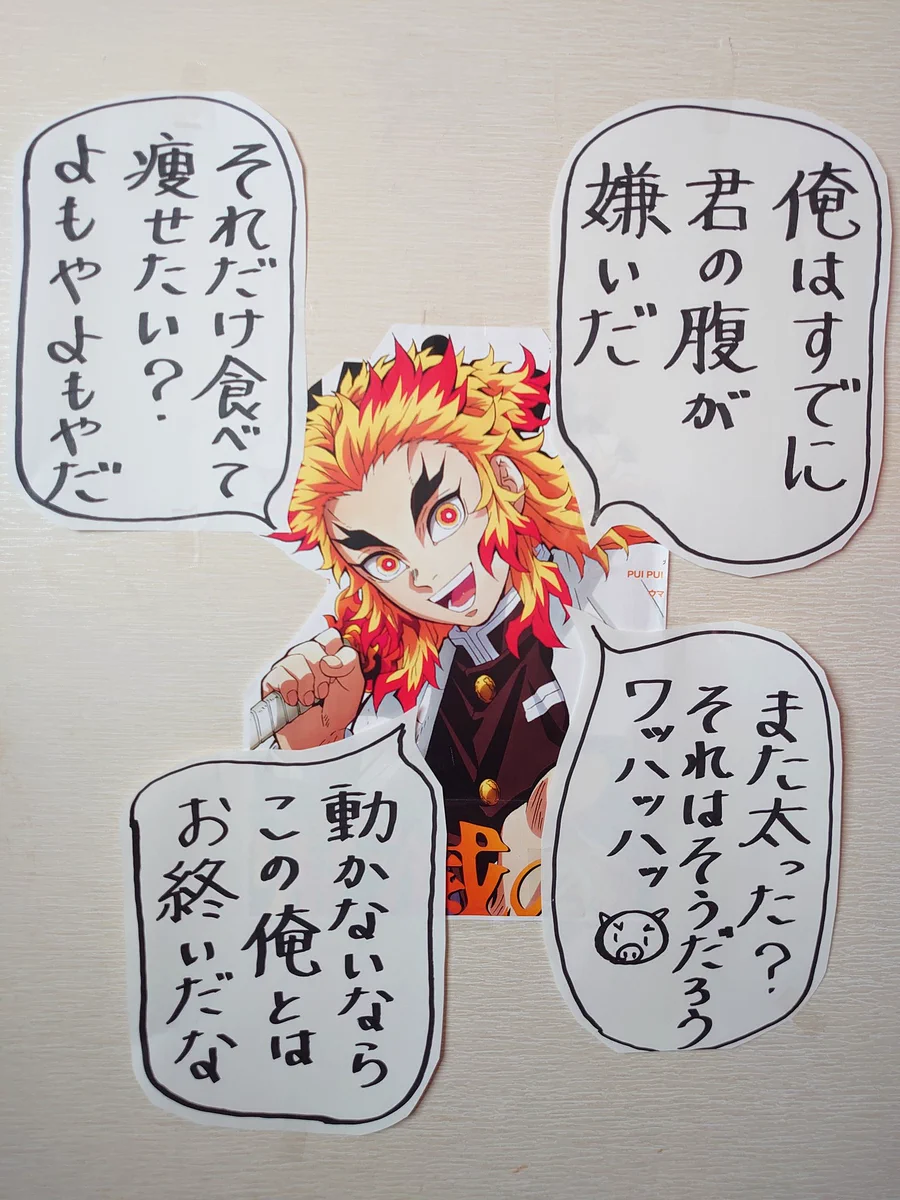 俺はすでに
君の腹が
嫌いだ
それだけ食べて
痩せたい?
よもやよもやだ
また太った?
それはそうだろう
ワッハッハッ
動かないなら
この俺とは
お終いだな
PUI PU!
ウマ